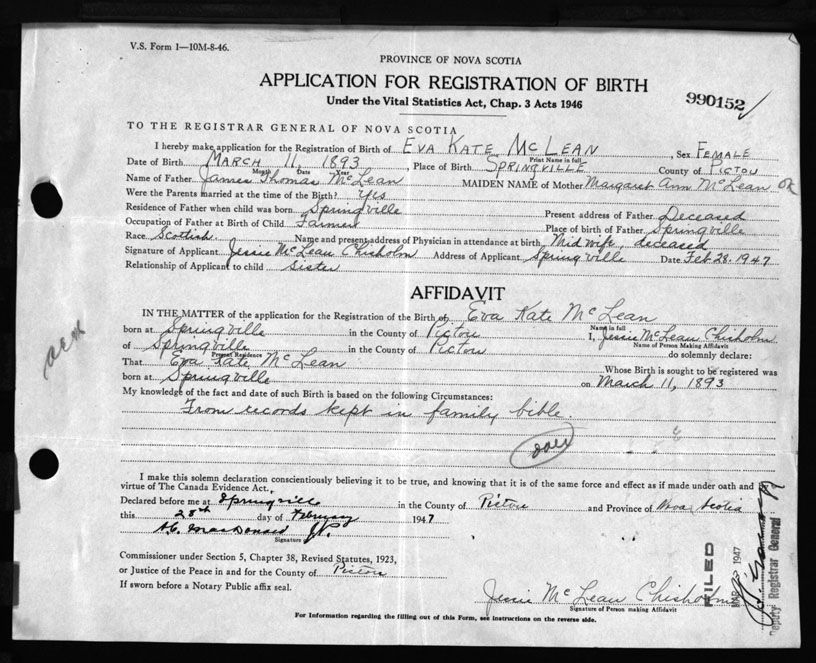 V.S. Form 1—10M-8-46.
PROVINCE OF NOVA SCOTIA
APPLICATION FOR REGISTRATION OF BIRTH
Under the Vital Statistics Act, Chap. 3 Acts 1946
990152
TO THE REGISTRAR GENERAL OF NOVA SCOTIA
I hereby make application for the Registration of Birth of EVA KATE McLEAN, Sex FEMALE
Print Name in full
Date of Birth MARCH 11, 1893, Place of Birth SPRINGVILLE County of PICTOU
Month Date Year
Name of Father James Thomas McLean MAIDEN NAME of Mother Margaret Ann McLean OK
Were the Parents married at the time of Birth? Yes
Residence of Father when child was born Springville Present address of Father Deceased
Occupation of Father at Birth of Child Farmer Place of birth of Father Springville
Race Scottish. Name and present address of Physician in attendance at birth Midwife, deceased
Signature of Applicant Jessie McLean Chisholm Address of Applicant Springville Date Feb 28. 1947
Relationship of Applicant to child sister
AFFIDAVIT
IN THE MATTER of the application for the Registration of the Birth of Eva Kate McLean
Name in full
born at Springville in the County of Pictou I, Jessie McLean Chisholm
Name of Person Making Affidavit
of Springville in the County of Pictou do solemnly declare:
Present Residence
That Eva Kate McLean Whose Birth is sought to be registered was
born at Springville on March 11, 1893
My knowledge of the fact and date of such Birth is based on the following Circumstances:
From records kept in family bible.
over
I make this solemn declaration conscientiously believing it to be true, and knowing that it is of the same force and effect as if made under oath and by
virtue of The Canada Evidence Act.
Declared before me at Springville in the County of Pictou and Province of Nova Scotia
this 28th day of February 1947
A.C. MacDonald J.P.
Signature
Commissioner under Section 5, Chapter 38, Revised Statutes, 1923,
or Justice of the Peace in and for the County of Pictou
If sworn before a Notary Public affix seal.
Jessie McLean Chisholm
Signature of Person making Affidavit
For Information regarding the filling out of this Form, see instructions on the reverse side.
FILED
MAR 1947
Deputy Registrar General